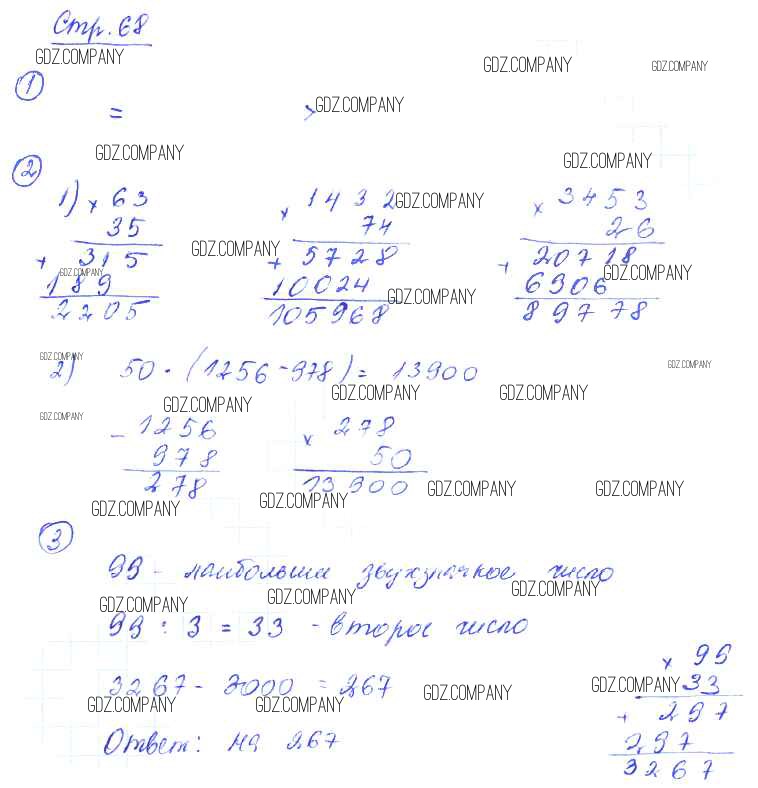 Стр. 68
GDZ.COMPANY GDZ.COMPANY GDZ.COMPANY
1
= > GDZ.COMPANY
GDZ.COMPANY GDZ.COMPANY
2
1) × 63 × 1432 GDZ.COMPANY × 3453
35 74 26
GDZ.COMPANY
+ 315 + 5728 + 20718
GDZ.COMPANY GDZ.COMPANY
189 10024 GDZ.COMPANY 6906
2205 105968 89778
GDZ.COMPANY GDZ.COMPANY
2) 50 · (1256 - 978) = 13900
GDZ.COMPANY GDZ.COMPANY GDZ.COMPANY GDZ.COMPANY
- 1256 × 278
978 50
278 13900
GDZ.COMPANY GDZ.COMPANY GDZ.COMPANY GDZ.COMPANY
3
99 - число
GDZ.COMPANY GDZ.COMPANY GDZ.COMPANY
99 : 3 = 33 - второе число
× 99
33
3267 - 3000 = 267
GDZ.COMPANY GDZ.COMPANY GDZ.COMPANY GDZ.COMPANY
+ 297
Ответ: на 267 297
3267